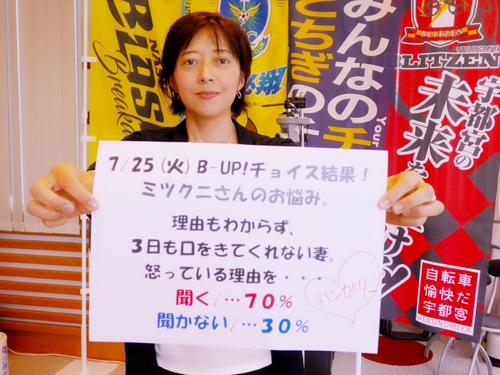 みんなの
とちぎの
BLITZEN
BLITZEN
宇都宮の
未来を
7/25(火)B-UP!チョイス結果!
ミツクニさんのお悩み。
理由もわからず、
3日も口をきてくれない妻。
怒っている理由を・・・
聞く/…70%
聞かない/…30%
ハンガリー
自転車
愉快だ
宇都宮
UTSUNOMIYA